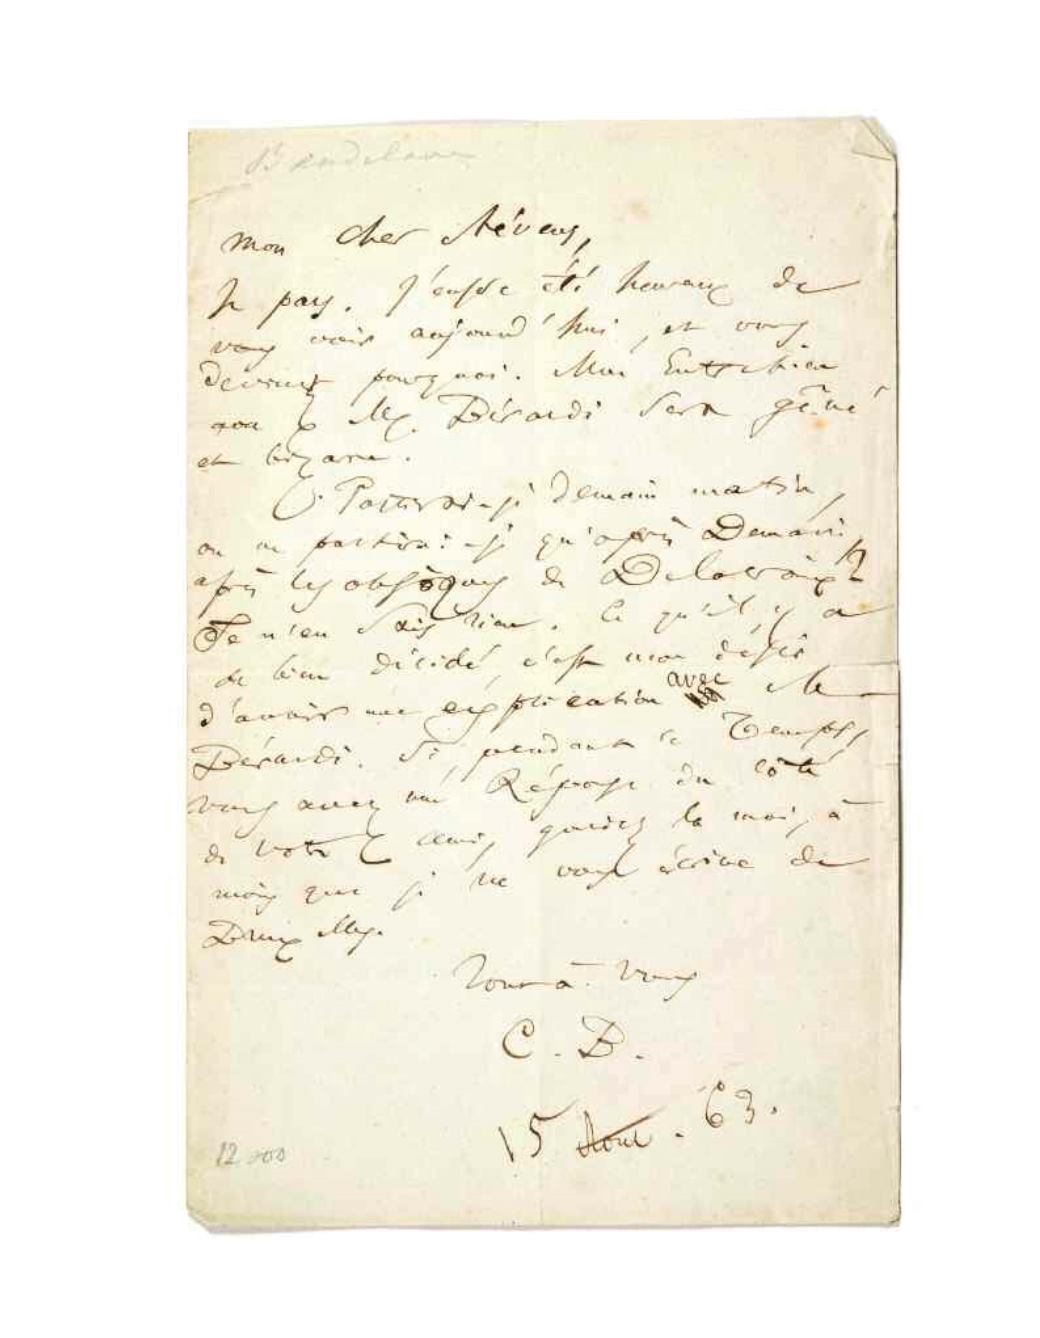 Baudelaire
mon cher Stévens,
Je pars. J'eusse été heureux de
vous voir aujourd'hui, et vous
devinez pourquoi. Mon Entretien
avec M. Bérardi sera gêné
et bizarre.
Partirai-je demain matin,
ou ne partirai-je qu'après Demain,
après les obsèques de Delacroix?
Je n'en sais rien. Ce qu'il y a
de bien décidé, c'est mon désir
d'avoir une explication avec M
Bérardi. Si, pendant ce Temps,
vous avez une Réponse du côté
de votre ami, gardez la moi, à
moins que je ne vous écrive de
Bruxelles.
Tout à vous
C. B.
15 Août. 63.
12 000